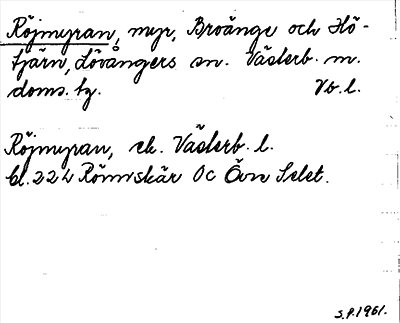 Röjmyran, myr, Broänge och Hö-
tjärn, Lövångers sn. Västerb. m.
doms. tg. Vb. l.
Röjmyran, ek. Västerb. l.
bl. 224 Rönnskär Oc Övre Selet.
S.P. 1961.